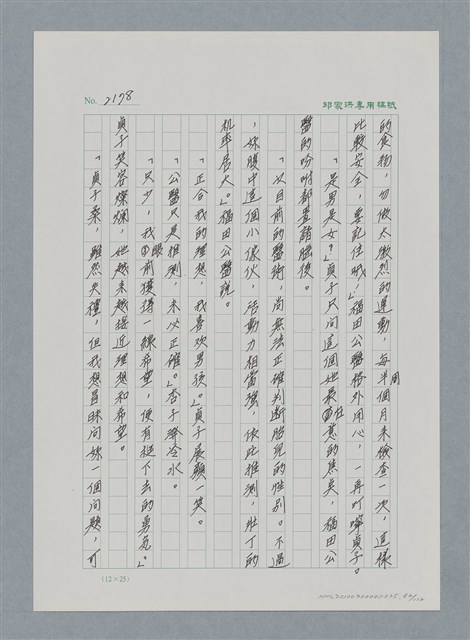 No. 2178
邱家洪專用稿紙
的食物，切做太激烈的運動，每半個月周來檢查一次，這樣
比較安全，要記住哦！」福田公醫格外用心，一再叮嚀貞子。
「是男是女？」貞子只問這個她最在意的焦矣，福田公
醫的吩咐都置諸腦後。
「以目前的醫術，尚無法正確判斷胎兒的性別。不過
，妳腹中這個小傢伙，活動力相當強，依此推測，壯丁的
机率居大。」福田公醫說。
「正合我的理想，我喜欢男孩。」貞子展顏一笑。
「公醫只是推測，未必正確。」杏子潑冷水。
「只少，我眼前獲得一線希望，便有挺下去的勇氣。」
貞子笑容燦爛，她越來越接近理想和希望。
「貞子桑，雖然失禮，但我想冒昧问妳一個问題，可
(12×25)